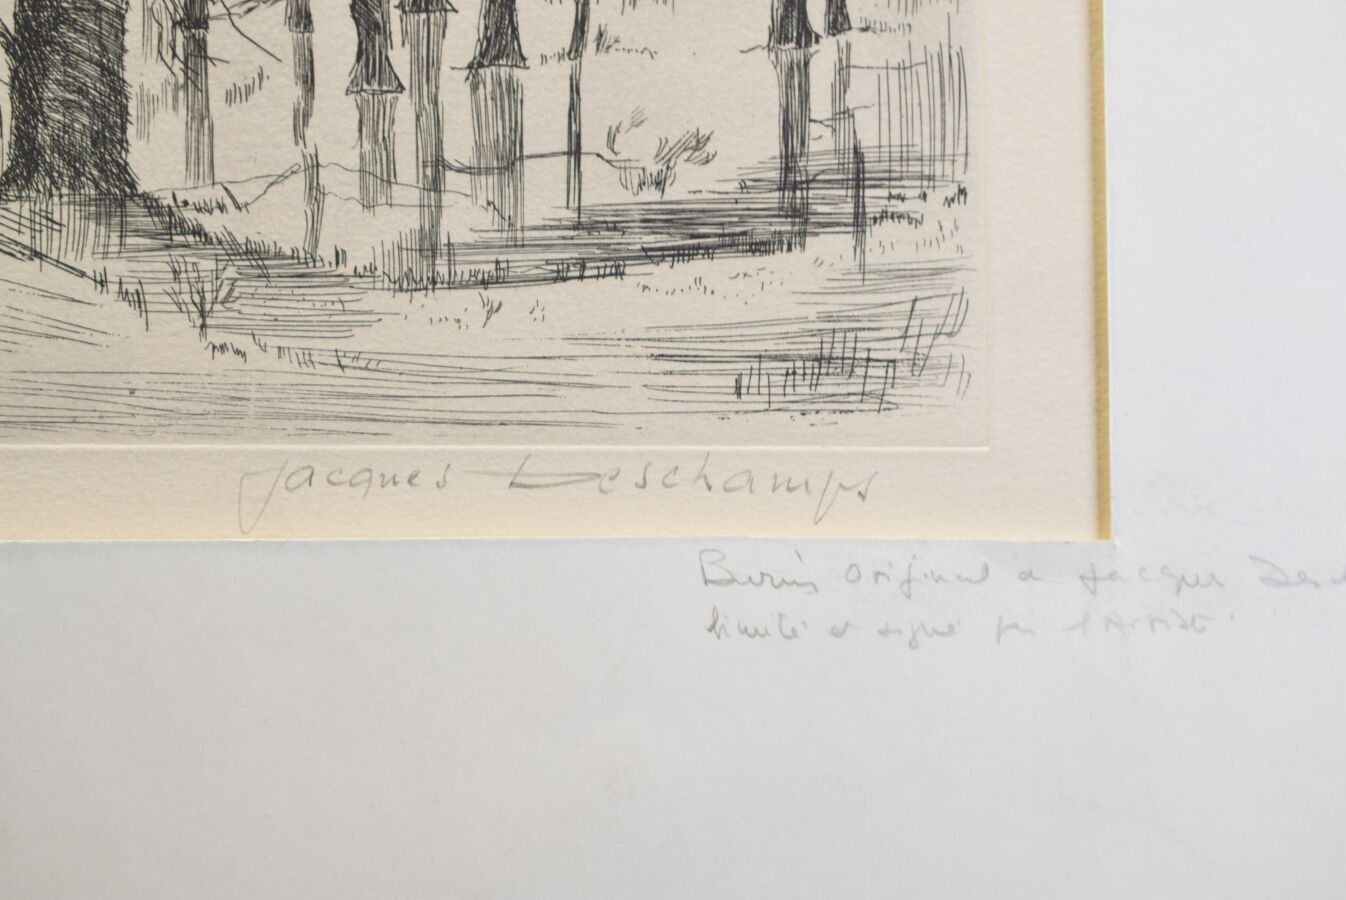 Jacques Deschamps
Burin original de Jacques Desch
limité et signé par l'Artiste.